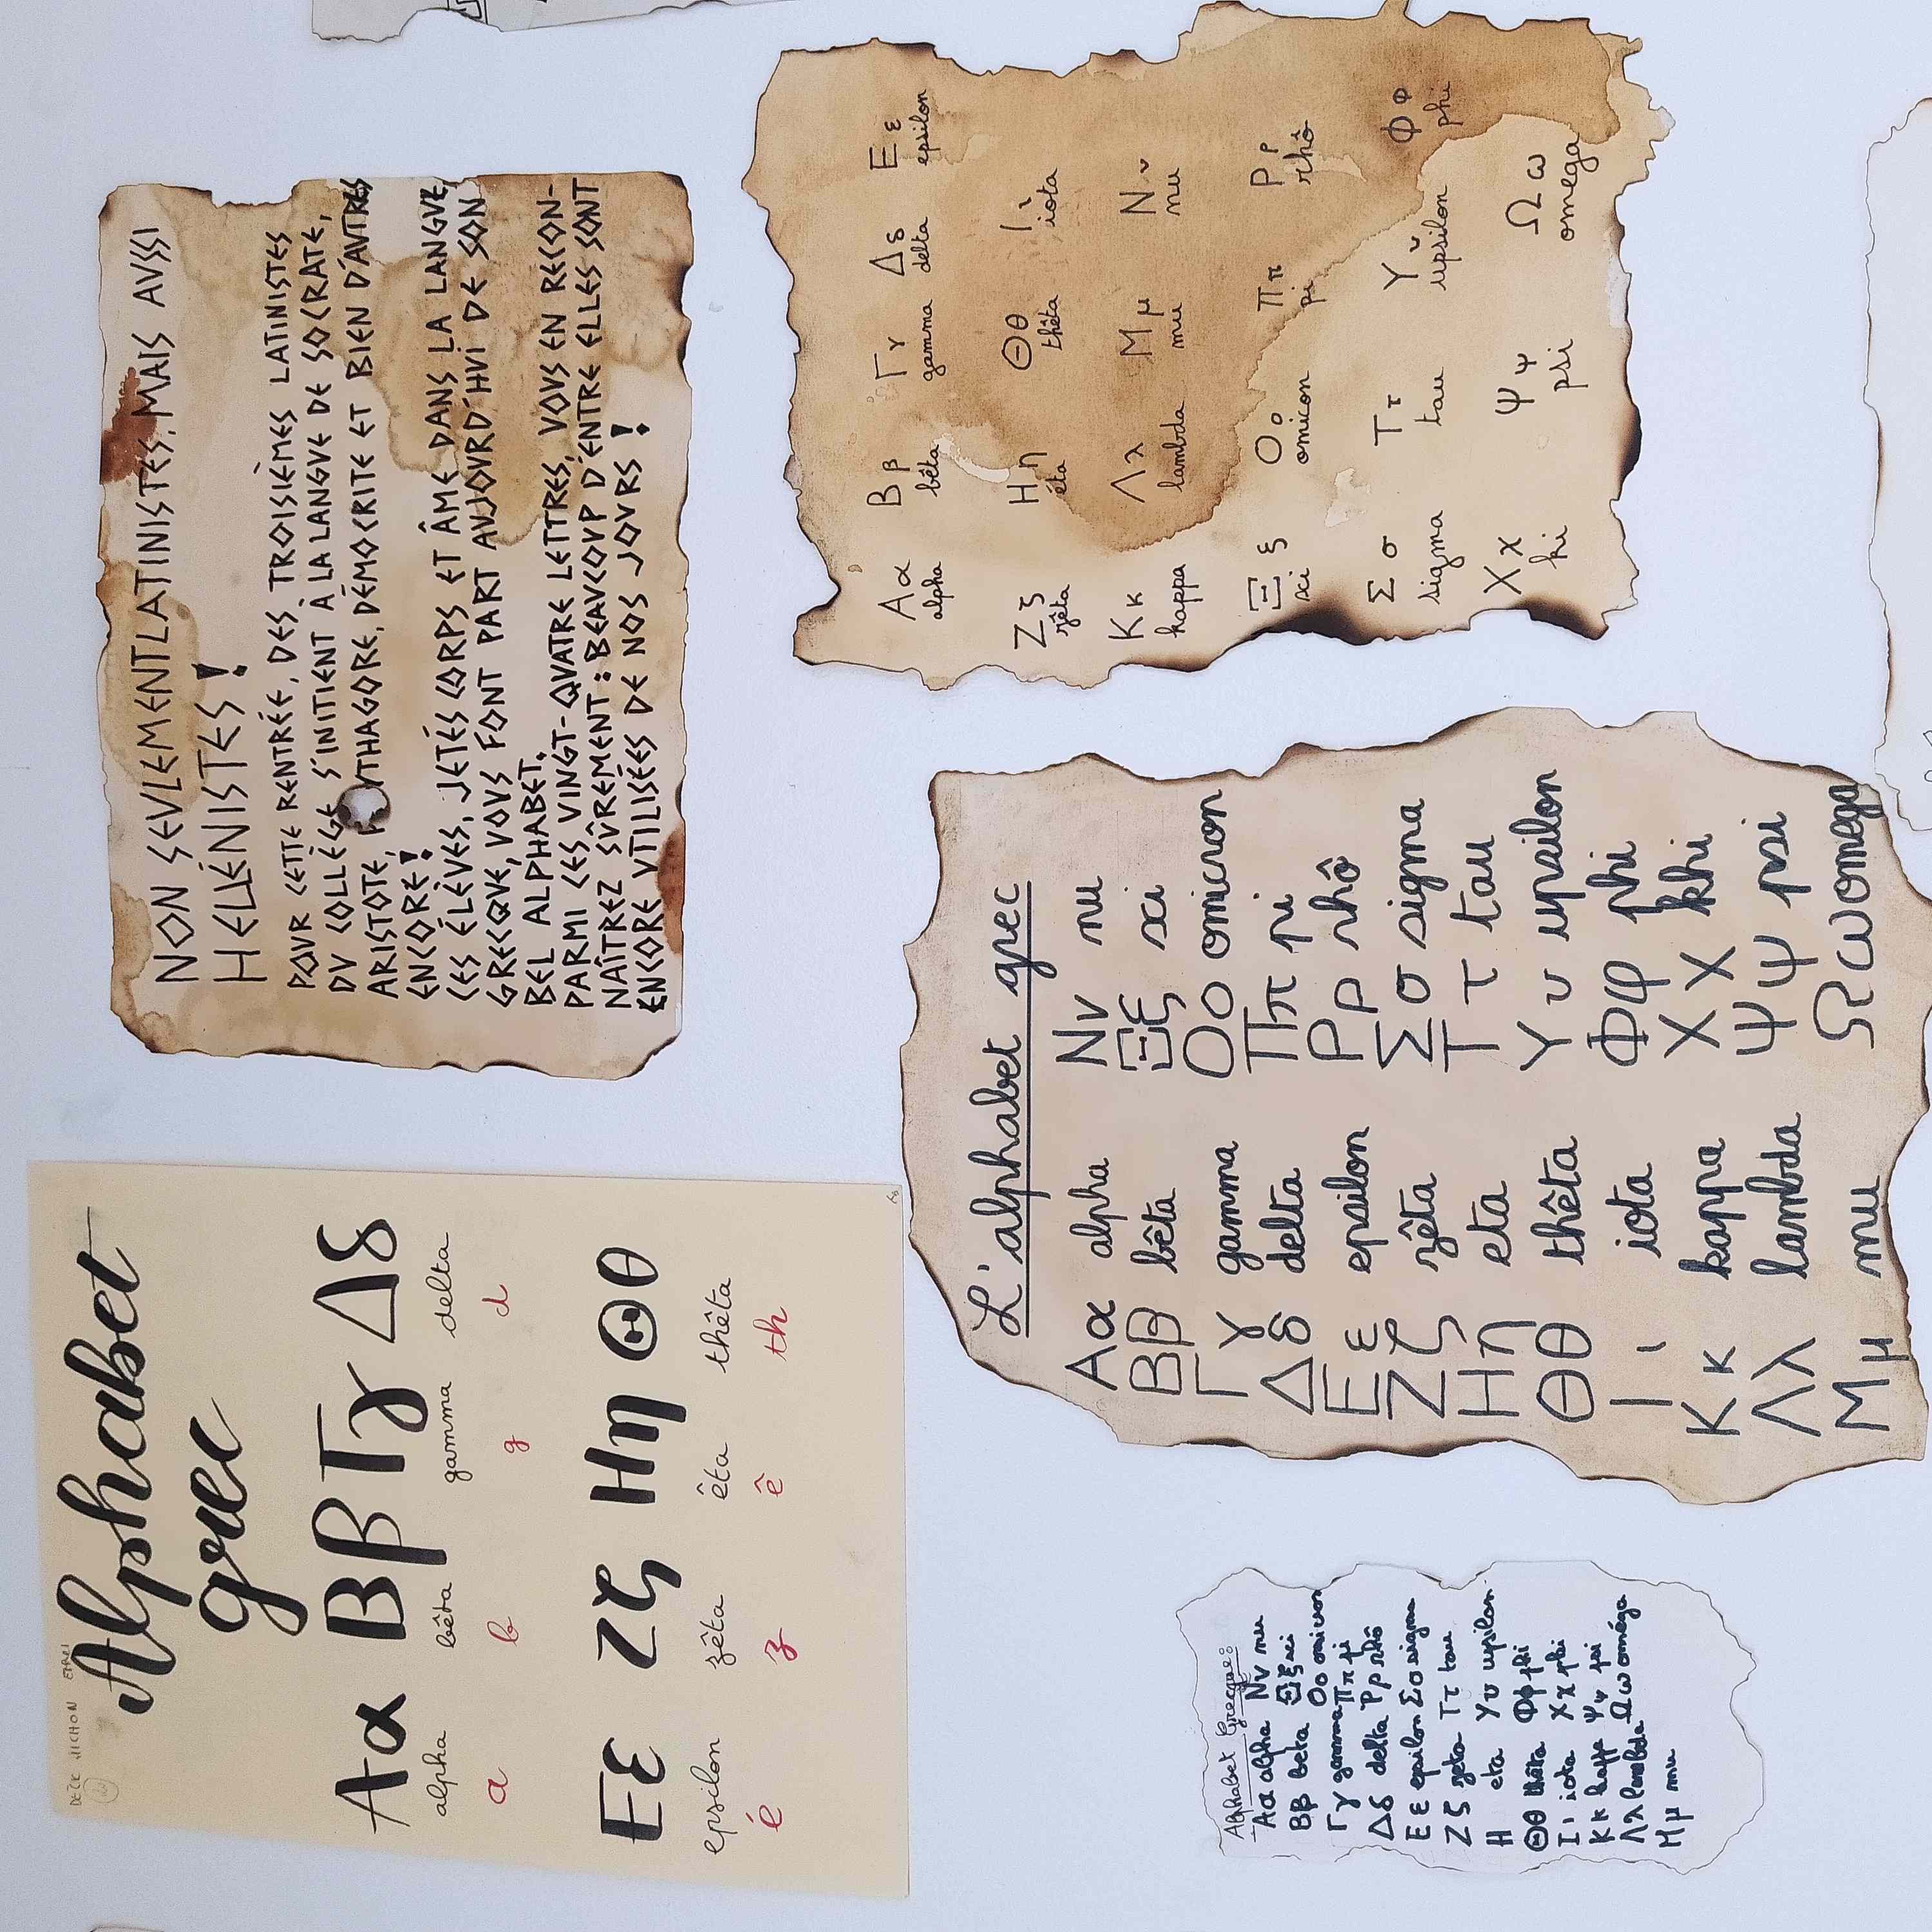 Alphabet
grec
Aα Ββ Γγ Δδ
alpha bêta gamma delta
a b g d
Εε Ζζ Ηη Θθ
epsilon zêta êta thêta
é z ê th
NON SEVLEMENT LATINISTES, MAIS AVSSI
HELLÉNISTES !
POVR CETTE RENTRÉE, DES TROISIÈMES LATINISTES
DV COLLÈGE S'INITIENT À LA LANGVE DE SOCRATE,
ARISTOTE, PYTHAGORE, DÉMOCRITE ET BIEN D'AVTRES
ENCORE !
CES ÉLÈVES, JETÉS CORPS ET ÂME DANS LA LANGVE
GRECQVE, VOVS FONT PART AVJOVRD'HVI DE SON
BEL ALPHABET.
PARMI CES VINGT-QVATRE LETTRES, VOVS EN RECON-
NAÎTREZ SÛREMENT : BEAVCOVP D'ENTRE ELLES SONT
ENCORE VTILISÉES DE NOS JOVRS !
Alphabet Grecque:
Αα alpha Νν nu
Ββ beta Ξξ xi
Γγ gamma Ππ pi
Οο omicron
Δδ delta Ρρ rhô
Εε epsilon Σσ sigma
Ζζ zeta Ττ tau
Η eta Υυ upsilon
Θθ thêta Φφ phi
Ιι iota Χχ phi
Κκ kappa Ψψ psi
Λλ lambda Ωω oméga
Μμ mu
L'alphabet grec
Αα alpha Νν nu
Ββ bêta Ξξ xi
Γγ gamma Οο omicron
Δδ delta Ππ pi
Εε epsilon Ρρ rhô
Ζζ zêta Σσ sigma
Ηη eta Ττ tau
Θθ thêta Υυ upsilon
Ιι iota Φφ phi
Κκ kappa Χχ khi
Λλ lambda Ψψ psi
Μμ mu Ωω omega
Αα Ββ Γγ Δδ Εε
alpha bêta gamma delta epsilon
Ζζ Ηη Θθ Ιι
zêta êta thêta iota
Κκ Λλ Μμ Νν
kappa lambda mu nu
Ξξ Οο Ππ Ρρ
xi omicron pi rhô
Σσ Ττ Υυ Φφ
sigma tau upsilon phi
Χχ Ψψ Ωω
ki psi omega